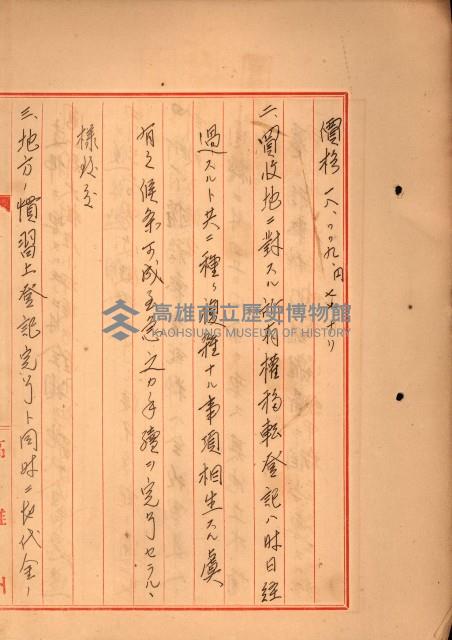 價格 一八、〇〇九、円七十
二、買收地ニ對スル所有權移転登記ハ時日経
過スルト共ニ種々複雑ナル事項相生スル虞
有之候条可成至急之カ手續ヲ完了セラル、
様致度
三、地方ノ慣習上登記完了ト同時ニ地代金ノ
高雄市立歷史博物館
KAOHSIUNG MUSEUM OF HISTORY
高雄州